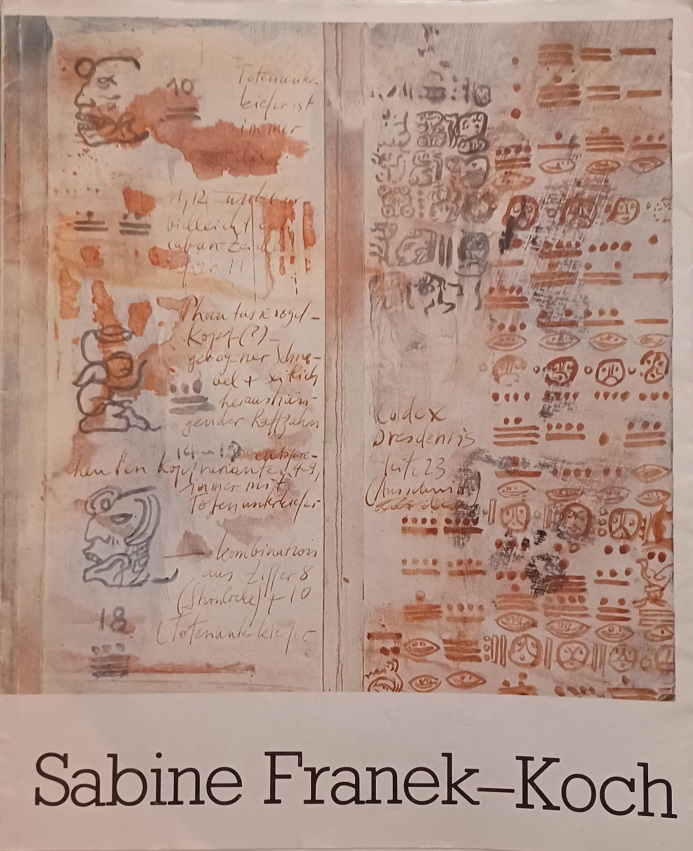 10
Totenunter-
kiefer ist
immer
11, 12
vielleicht
für 11
Phantasievogel-
kopf (?) –
gebogner Schna-
bel + seitlich
heraushän-
gender Raffzahn
14–19 entspre-
chen den Kopfvarianten 4–9,
immer mit
Totenunterkiefer
Kombination
aus Ziffer 8
(Stirnlocke) + 10
(Totenunterkiefer
18
Codex
Dresdensis
Seite 23
(Ausschnitt
Sabine Franek–Koch